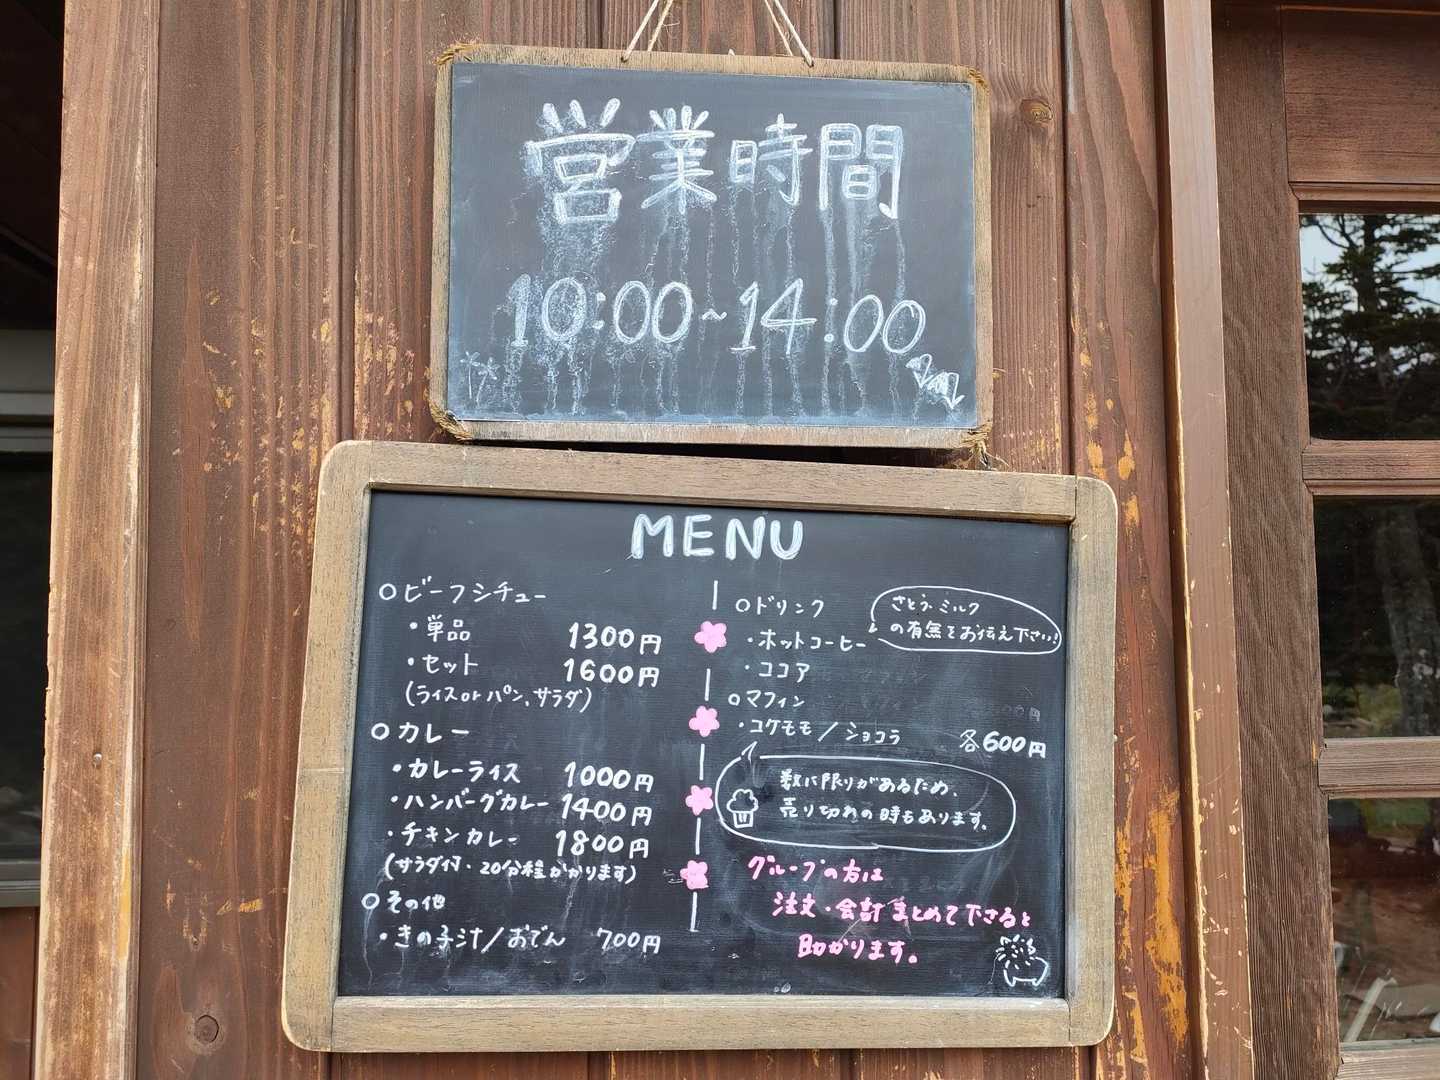 営業時間
10:00~14:00
MENU
○ビーフシチュー
・単品 1300円
・セット 1600円
(ライスorパン、サラダ)
○カレー
・カレーライス 1000円
・ハンバーグカレー 1400円
・チキンカレー 1800円
(サラダ付・20分程かかります)
○その他
・きの子汁/おでん 700円
○ドリンク
・ホットコーヒー
さとう・ミルク
の有無をお伝え下さい!
・ココア
○マフィン
・コケモモ/ショコラ
各600円
数に限りがあるため、
売り切れの時もあります。
グループの方は
注文・会計まとめて下さると
助かります。